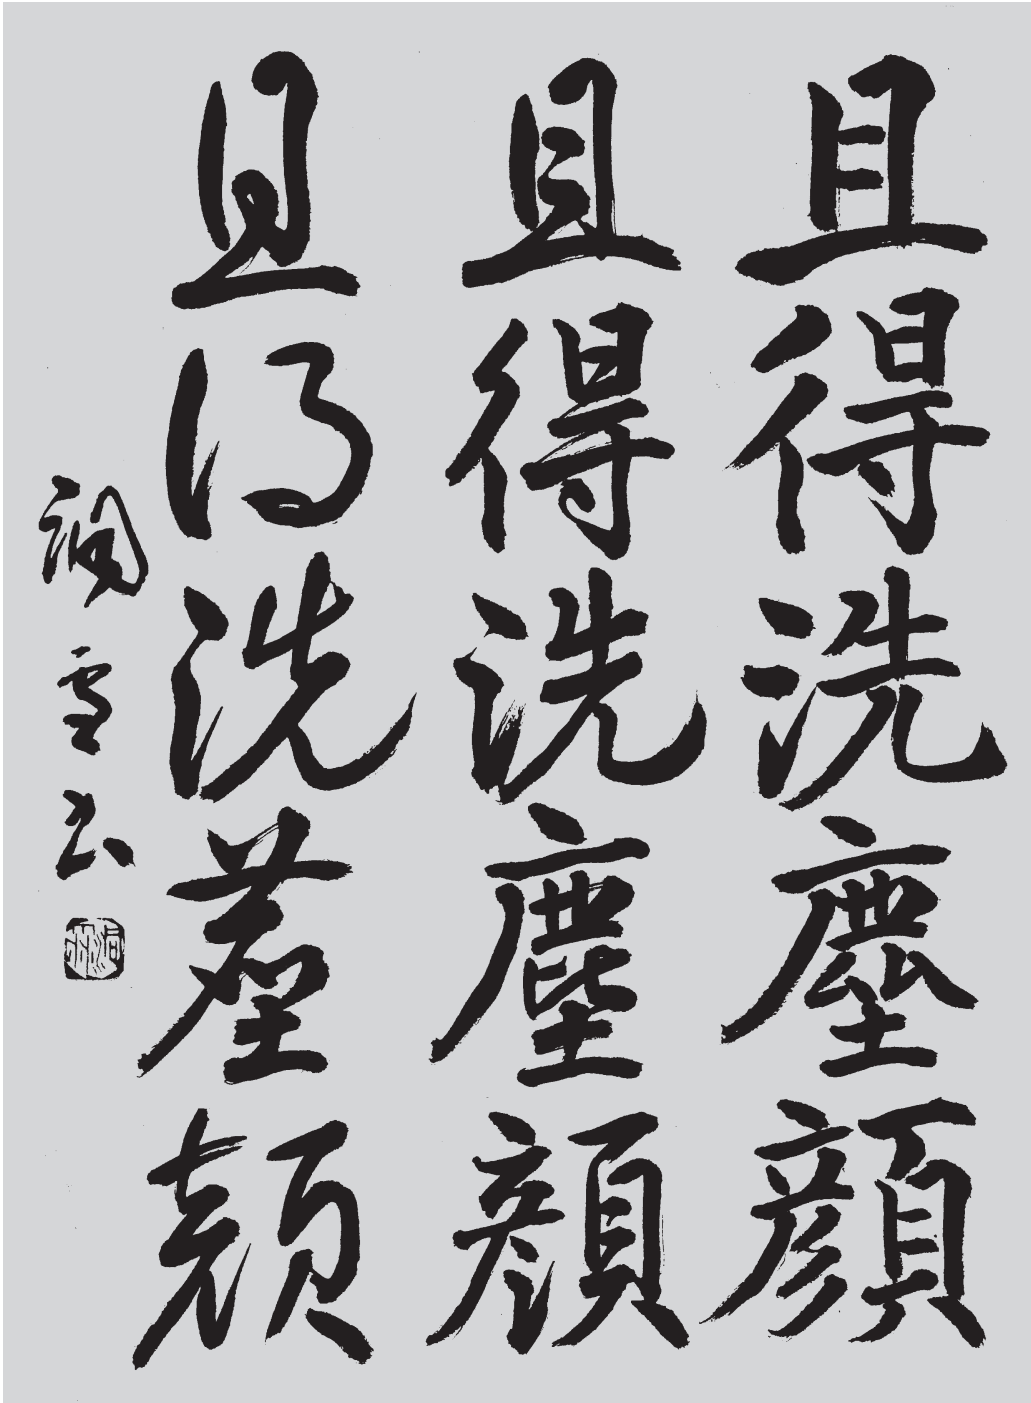 且得洗塵顔
且得洗塵顔
且得洗塵顔
雪書